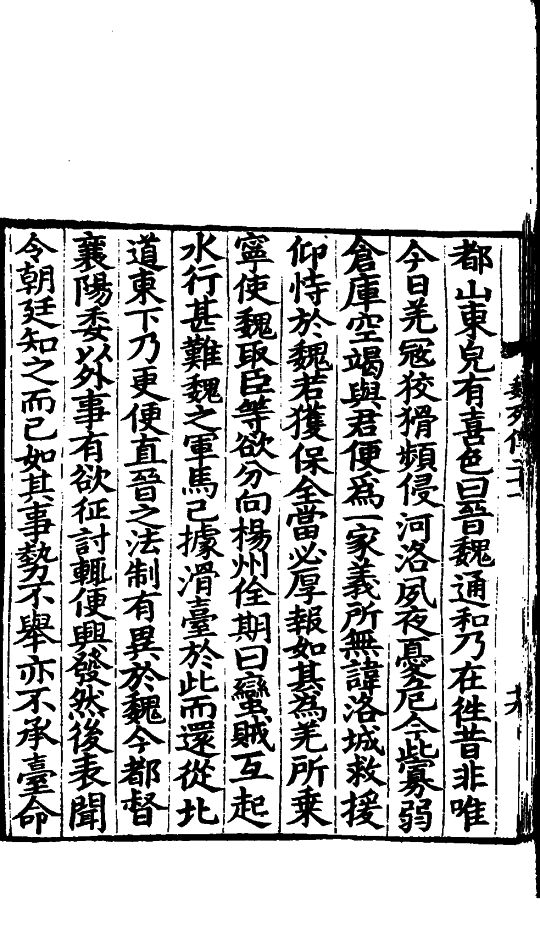 都山東皃有喜色曰晉魏通和乃在徃昔非唯
今日羌寇狡猾頻侵河洛夙夜憂危今此寡弱
倉庫空竭與君便爲一家義所無諱洛城救援
仰恃於魏若獲保全當必厚報如其爲羌所乗
寧使魏取臣等欲分向楊州佺期曰蠻賊互起
水行甚難魏之軍馬已據滑臺於此而還從北
道東下乃更便直晉之法制有異於魏今都督
襄陽委以外事有欲征討輒便興發然後表聞
令朝廷知之而已如其事勢不舉亦不承臺命
魏列傳二十一